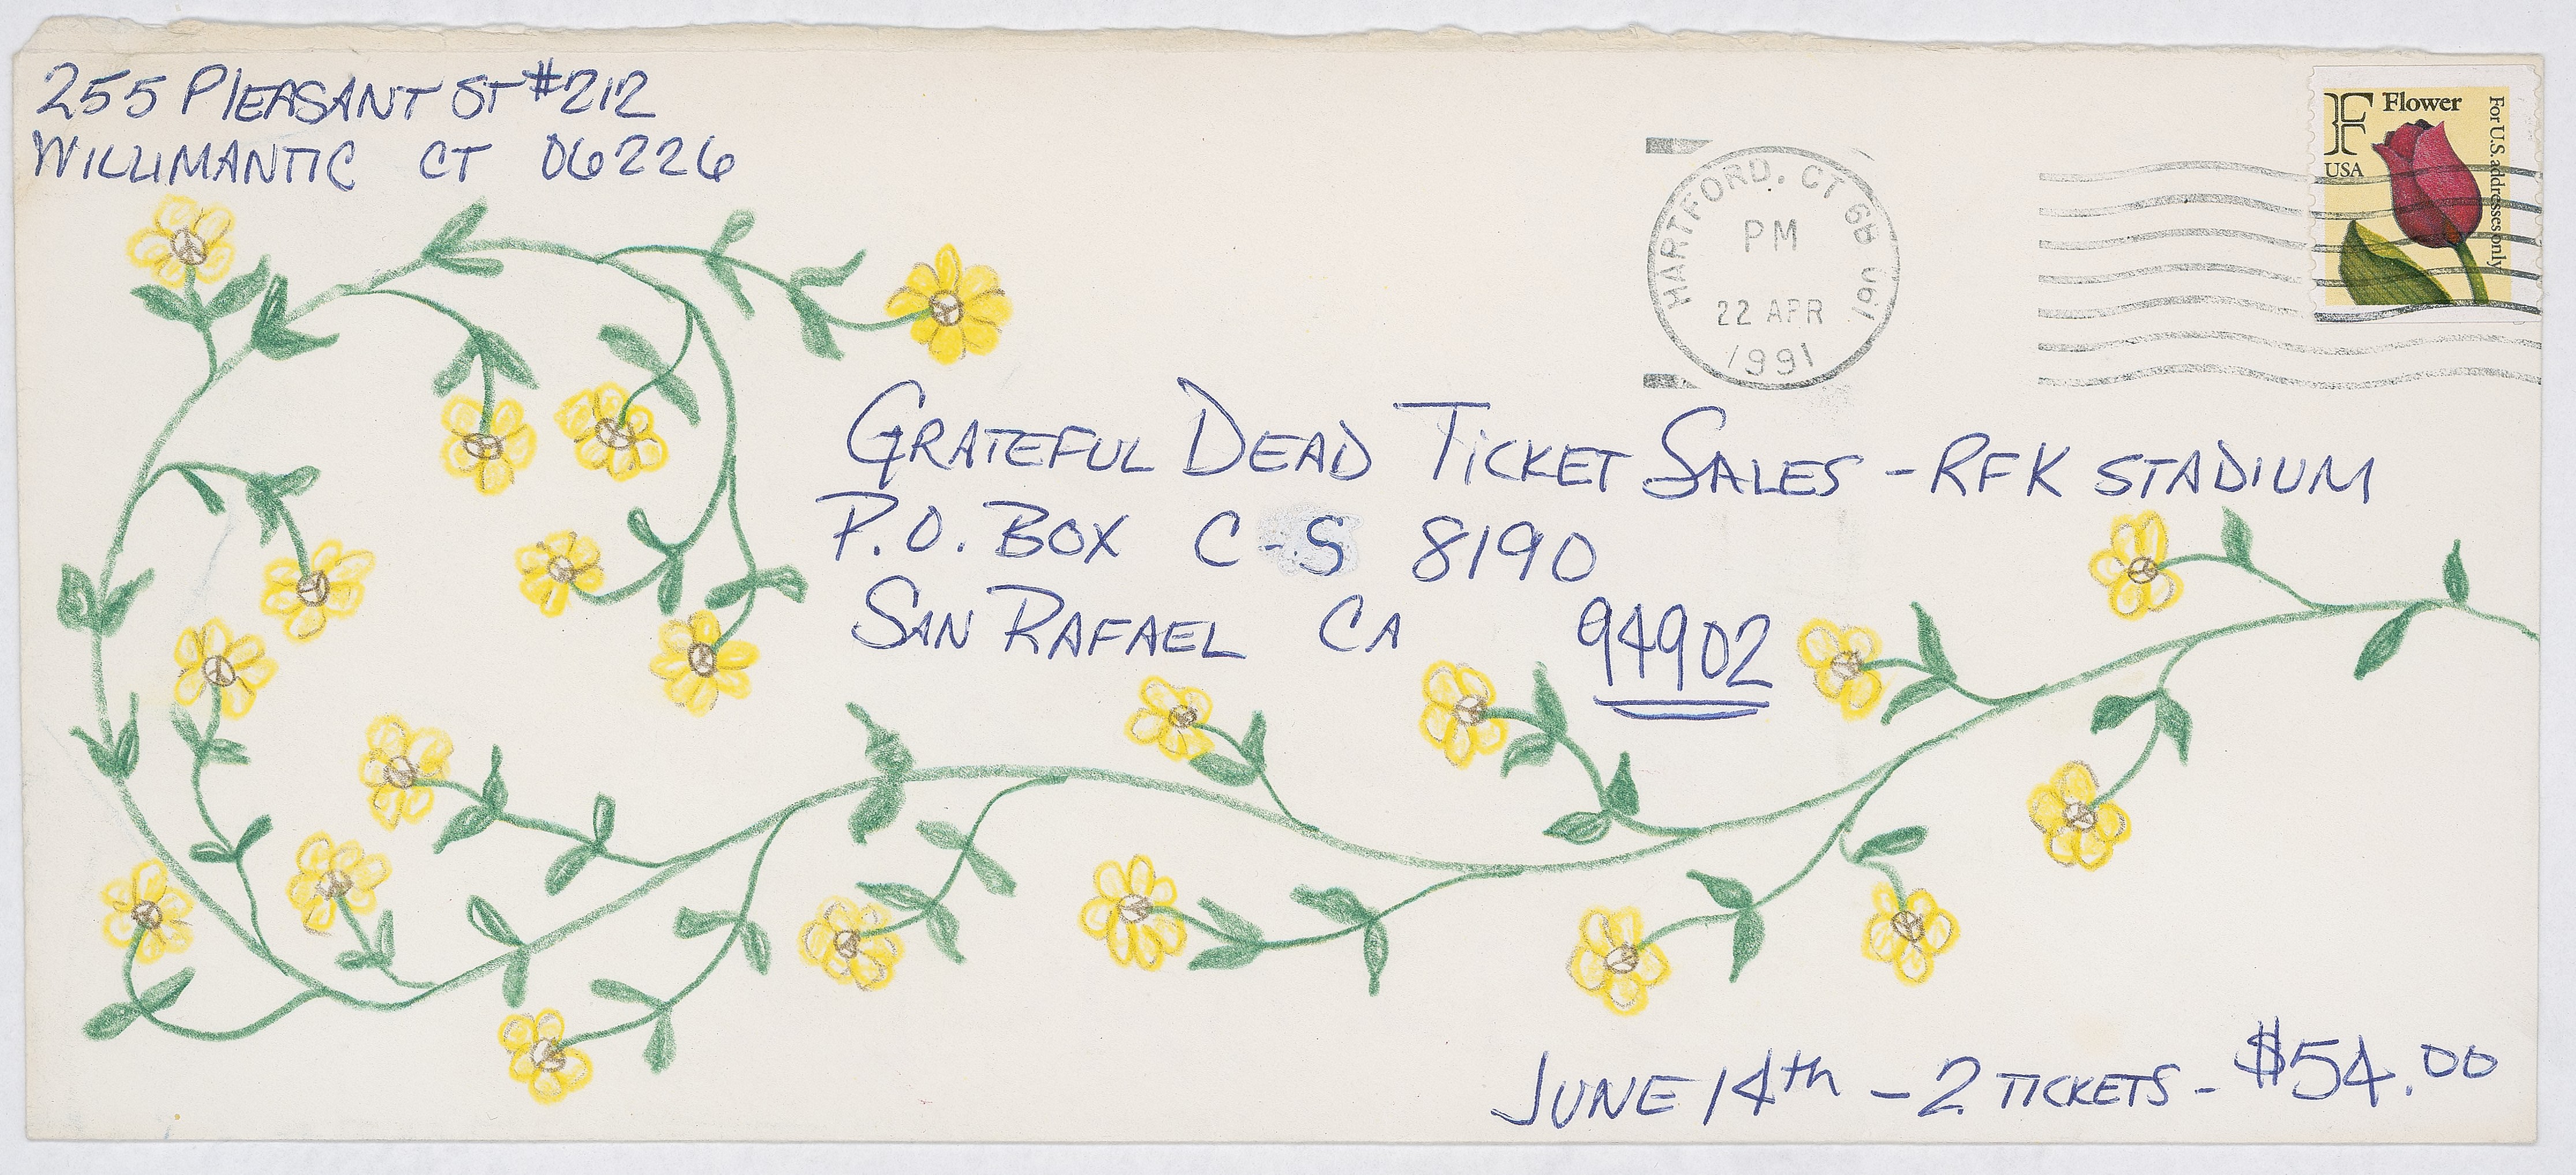 255 PLEASANT ST #212
WILLIMANTIC CT 06226
F Flower
USA
For U.S. addresses only
HARTFORD, CT 6B 061
PM
22 APR
1991
GRATEFUL DEAD TICKET SALES - RFK STADIUM
P.O. BOX C-S 8190
SAN RAFAEL CA 94902
JUNE 14th - 2 TICKETS - $54.00